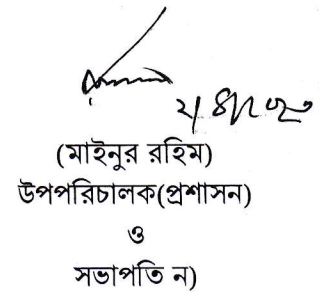 (মাইনুর রহিম)
উপপরিচালক(প্রশাসন)
ও
সভাপতি ন)